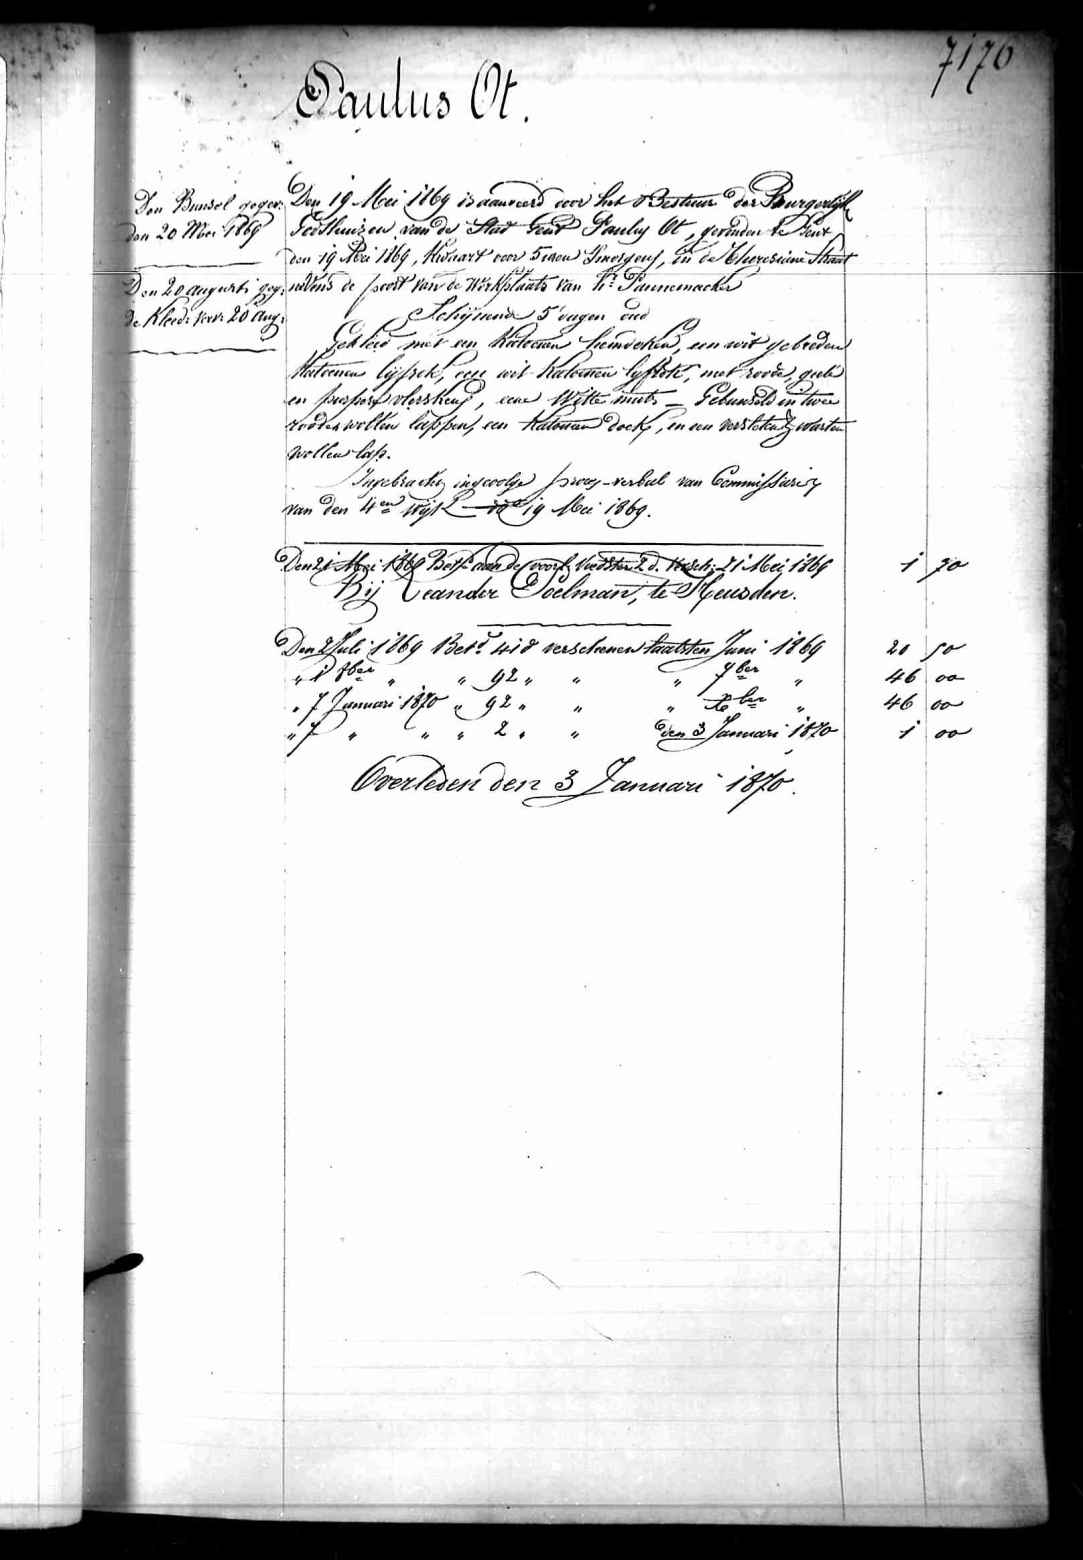 7176
Paulus Ot.
Den Bunsel gegev:
den 20 Mei 1869
Den 20 augusti geg:
de Kleed: verv: 20 aug:
Den 19 Mei 1869 is aanveerd voor het Bestuur der Burgerlijke
Godshuizen van de Stad Gent Paulus Ot, gevonden te Gent
den 19 Mei 1869, kwaart voor 5 uren 'smorgens, in de Theresiana Straat
nevens de poort van de Werkplaats van Hr Pannemaeker
Schijnende 5 dagen oud
Gekleed met een Katoenen hemdeken, een wit gebreden
Katoenen lijfrok, een wit Katoenen lijfrok, met roode, geele
en purper vlerskens, eene Witte muts _ Gebunseld in twee
roode wollen lappen, een Katoenen doek, en een versleten zwarten
wollen lap.
Ingebracht ingevolge proces-verbal van Commissaris
van den 4en Wijk 19 Mei 1869.
Den 21 Mei 1869 Bet: aan de voorl. Voedster 2 d. Versch: 21 Mei 1869 1 70
Bij Leander Poelman, te Heusden.
Den 2 Juli 1869 Betd 41 d verschenen laatsten Juni 1869 20 50
" 1 8ber " " 92 " " " 7ber " 46 00
" 7 Januari 1870 " 92 " " " Xber " 46 00
" 7 " " " 2 " " den 3 Januari 1870 1 00
Overleden den 3 Januari 1870.